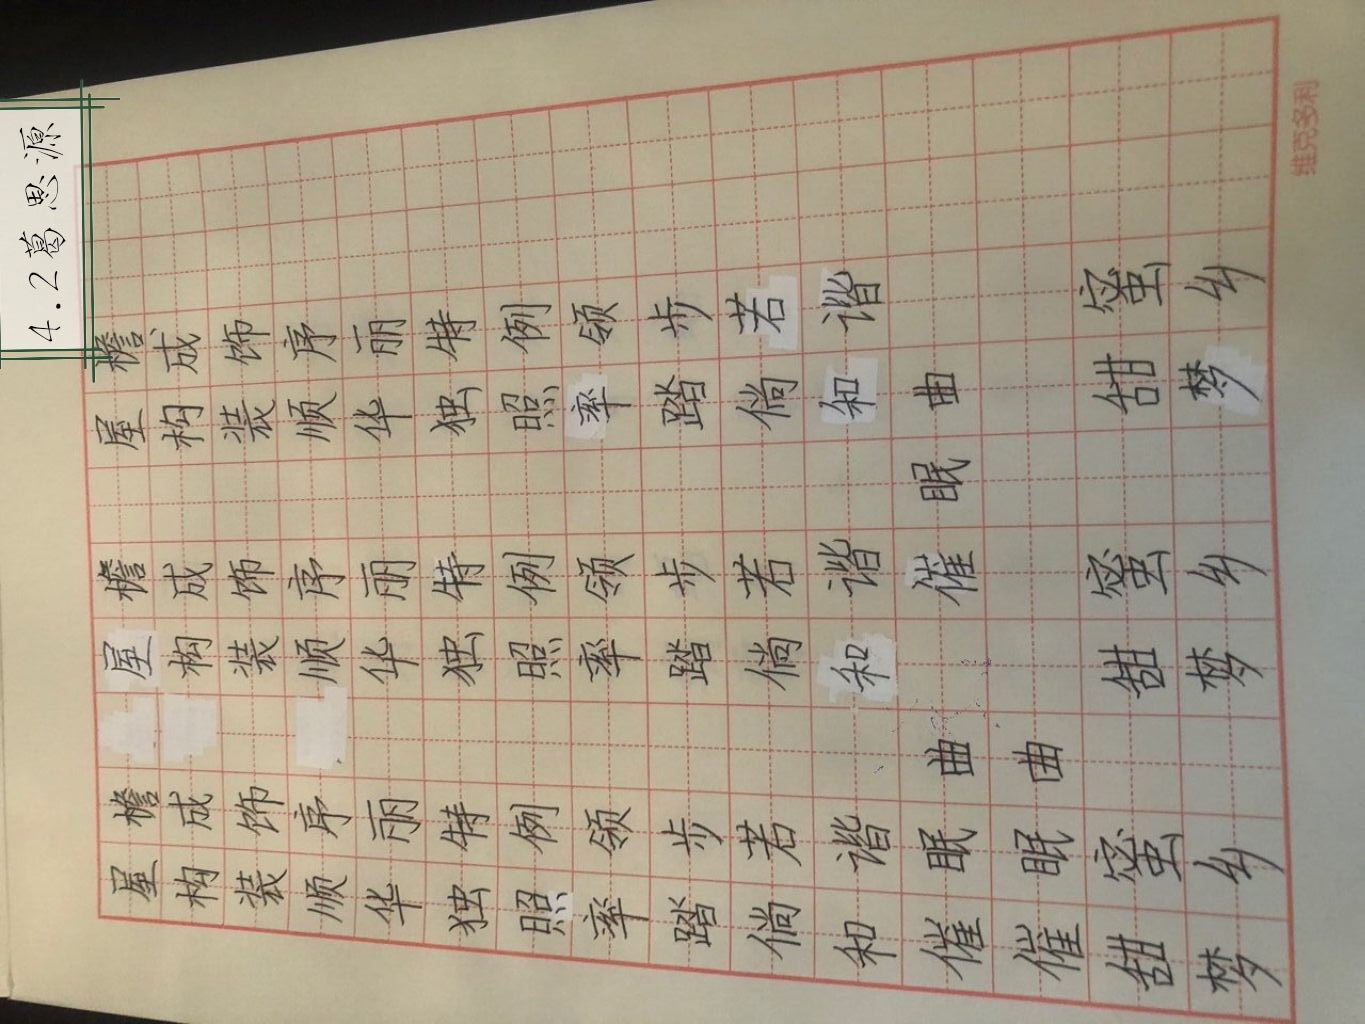 4.2葛思源
屋檐 屋檐 屋檐
构成 构成 构成
装饰 装饰 装饰
顺序 顺序 顺序
华丽 华丽 华丽
独特 独特 独特
照例 照例 照例
率领 率领 率领
踏步 踏步 踏步
倘若 倘若 倘若
和谐 和谐 和谐
催眠曲 催眠曲
催眠曲
甜蜜 甜蜜 甜蜜
梦乡 梦乡 梦乡
维克多利